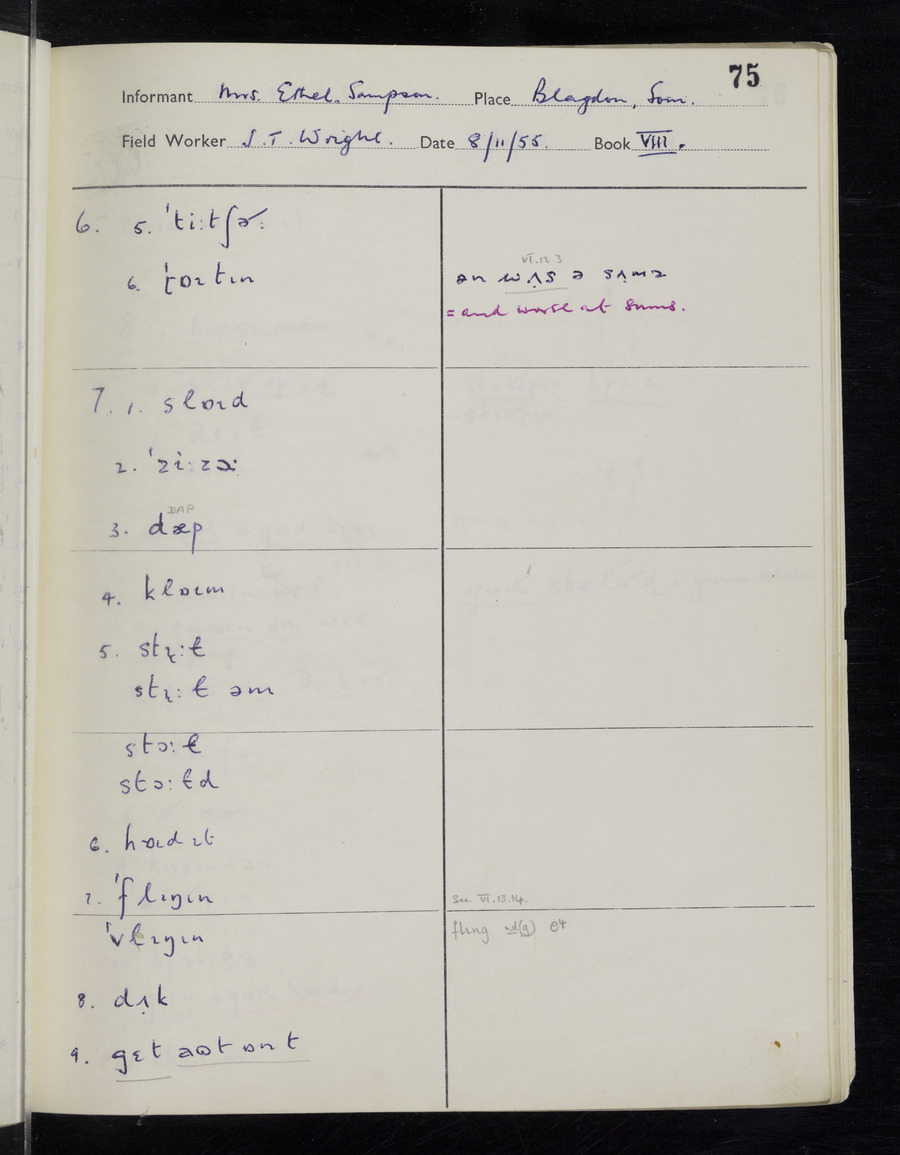 75
Informant Mrs. Ethel. Sampson. Place Blagdon, Som.
Field Worker J. T. Wright. Date 8/11/55. Book VIII.
6. 5. ˈtiːtʃəʳː
6. ˈɽɒɪtɪn
VI.12 3
ən wʌ̣s ə sʌ̣mz
= and worse at sums.
7. 1. slɒɪd
2. ˈziːzɔː
DAP
3. dæp
4. klɒɪm
5. stɻːt
stɻːt əm
stɔːt
stɔːtd
6. hɒɪd ɪt
7. ˈflɪŋɪn
See VI.13.14.
ˈvlɪŋɪn
8. dʌ̣k
9. gɛt əʊt ɒn t